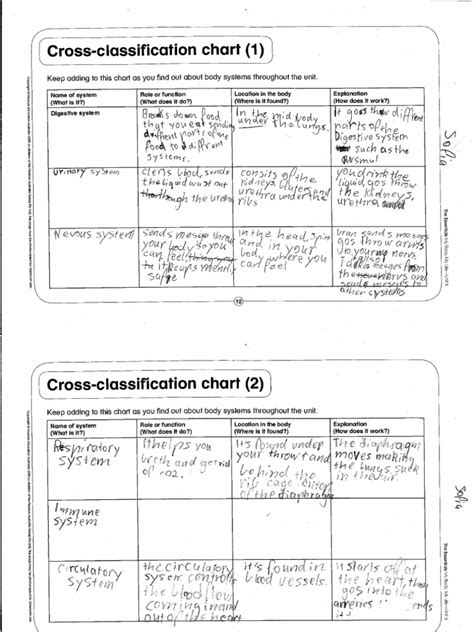 Cross-classification chart (1)
Keep adding to this chart as you find out about body systems throughout the unit.
Name of system
(What is it?)
Role or function
(What does it do?)
Location in the body
(Where is it found?)
Explanation
(How does it work?)
Digestive system
Breaks down food
that you eat sending
parts of the
food to different
systems.
In the mid body
under the lungs.
It goes throw different
parts of the
Digestive system
such as the
urinary system
clens blood, sends
the liquid wast out
through the urethra
consits of the
kidneys, and
urethra under the
ribs
you drink the
liquid, gos throw
the kidneys,
urethra
Nevous system
sends mesege throw
your body so you
can feel,
it keaps mently
safe
in the head, spin
and in your
body where you
can feel
bran sends mesegs
gos throw
your nervs
mesages from
the nervs and
send mesegs to
other systems
Sofia
The Essentials
12
Cross-classification chart (2)
Keep adding to this chart as you find out about body systems throughout the unit.
Name of system
(What is it?)
Role or function
(What does it do?)
Location in the body
(Where is it found?)
Explanation
(How does it work?)
Respiratory
system
It helps you
breth and get rid
of co2.
It's found under
your throwt and
behind the
rib cage on top
of the diaphragm
The diaphragm
moves making
the lungs suck
in the air.
Immune
system
Circulatory
system
the circulatory
system controlls
the blood flow
coming in and
out of the heart
it's found in
blood vessels.
it starts off at
the heart, then
gos into the
arteries ends
Sofia
The Essentials